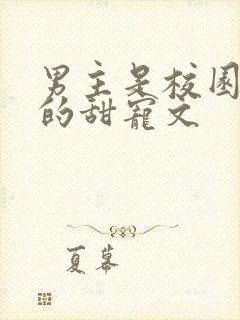 男主是校园
的甜寵文
夏幕